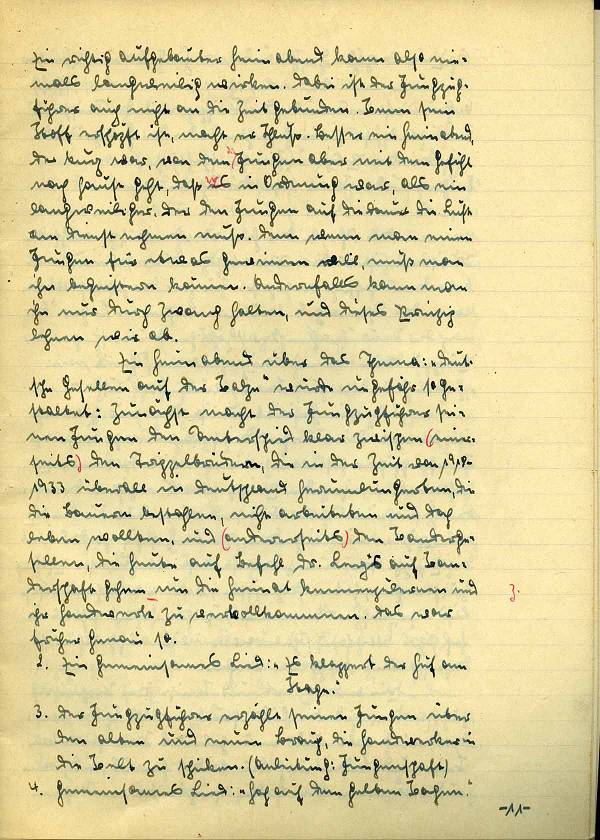 Ein richtig aufgebauter Heimabend kann also nie-
mals langweilig wirken. Dabei ist der Jungzug-
führer auch nicht an die Zeit gebunden. Wenn sein
Stoff erschöpft ist, macht er Schluß. Besser ein Heimabend,
der kurz war, von dem Jungen aber mit dem Gefühl
nach Hause geht, daß es in Ordnung war, als ein
langweiliger, der den Jungen auf die Dauer die Lust
am Dienst nehmen muß. Denn wenn man einen
Jungen für etwas gewinnen will, muß man
ihn begeistern können. Andernfalls kann man
ihn nur durch Zwang halten, und dieses Prinzip
lehnen wir ab.
Ein Heimabend über das Thema: „Deut-
sche Gesellen auf der Walze" würde ungefähr so ge-
staltet: Zunächst macht der Jungzugführer sei-
nen Jungen den Unterschied klar zwischen (einer-
seits) den Tippelbrüdern, die in der Zeit von 1918-
1933 überall in Deutschland herumlungerten, die
die Bauern bestahlen, nicht arbeiteten und doch
leben wollten, und (andererseits) den Wanderge-
sellen, die heute auf Befehl Dr. Ley's auf Wan-
derschaft gehen um die Heimat kennenzulernen und
ihr Handwerk zu vervollkommnen. Das war
3.
früher genau so.
2. Ein gemeinsames Lied: „Es klappert der Huf am
Stege."
3. Der Jungzugführer erzählt seinen Jungen über
den alten und neuen Brauch, die Handwerker in
die Welt zu schicken. (Anleitung: Jungenschaft)
4. Gemeinsames Lied: „Hoch auf dem gelben Wagen."
-11-